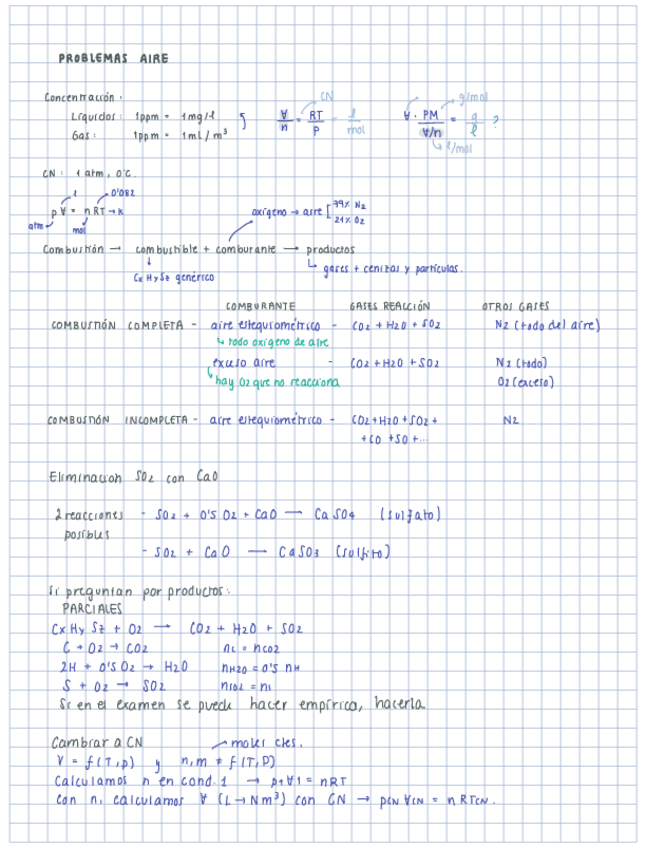 PROBLEMAS AIRE
Concentración:
Líquidos: 1ppm = 1mg/l
Gas: 1ppm = 1ml/m³
V/n = RT/P = l/mol
CN
V · PM/(V/n) = g/l ?
g/mol
l/mol
CN: 1 atm, 0°C.
l 0'082
pV = nRT → K
atm mol
oxígeno → aire [ 79% N2
21% O2
Combustión → combustible + comburante → productos
CxHySz genérico
↳ gases + cenizas y partículas.
COMBURANTE GASES REACCIÓN OTROS GASES
COMBUSTIÓN COMPLETA - aire estequiométrico - CO2 + H2O + SO2 N2 (todo del aire)
↳ todo oxígeno de aire
exceso aire - CO2 + H2O + SO2 N2 (todo)
↳ hay O2 que no reacciona O2 (exceso)
COMBUSTIÓN INCOMPLETA - aire estequiométrico - CO2 + H2O + SO2 + N2
+ CO + SO + ...
Eliminacion SO2 con CaO
2 reacciones - SO2 + 0'5 O2 + CaO — CaSO4 (sulfato)
posibles
- SO2 + CaO — CaSO3 (sulfito)
Si preguntan por productos:
PARCIALES
CxHySz + O2 → CO2 + H2O + SO2
C + O2 → CO2 nc = nCO2
2H + 0'5 O2 → H2O nH2O = 0'5 nH
S + O2 → SO2 nSO2 = ns
Si en el examen se puede hacer empírica, hacerla
Cambiar a CN
moles ctes.
V = f(T,p) y n,m ≠ f(T,P)
Calculamos n en cond. 1 → p1V1 = nRT
con n, calculamos V (L → Nm³) con CN → pCN VCN = n RTCN.